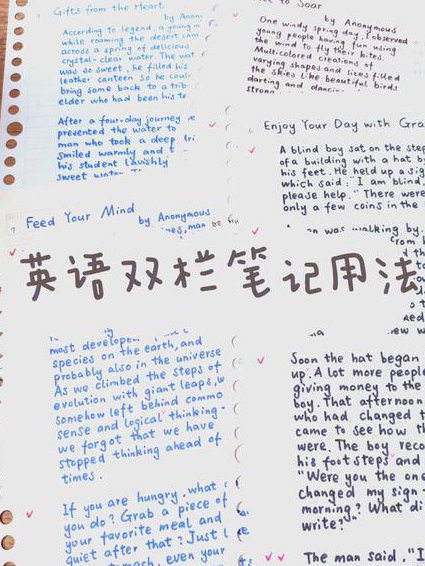 Gifts from the Heart
by Anonym
According to legend, a young m
while roaming the desert cam
across a spring of delicious
crystal-clear water. The wat
was so sweet, he filled his
leather canteen so he coul
bring some back to a trib
elder who had been his te
After a four-day journey
presented the water to
man who took a deep
smiled warmly and t
his student lavishly
sweet wate
to Soar
by Anonymous
One windy spring day, I observed
young people having fun using
the wind to fly their kites.
Multi-colored creations of
varying shapes and sizes filled
the skies like beautiful birds
darting and
strong
Enjoy Your Day with Gra
A blind boy sat on the step
of a building with a hat by
his feet. He held up a sig
which said: "I am blind,
please help." There were
only a few coins in the
man was walking by.
Feed Your Mind
by Anonymous
英语双栏笔记用法
most develope
species on the earth, and
probably also in the universe
As we climbed the steps of
evolution with giant leaps, w
somehow left behind commo
sense and logical thinking-
we forgot that we have
stopped thinking ahead of
times.
If you are hungry, what
you do? Grab a piece of
your favorite meal and
quiet after that? Just l
stomach, even your
Soon the hat began
up. A lot more people
giving money to the
boy. That afternoon
who had changed t
came to see how th
were. The boy reco
his foot steps and
"Were you the one
changed my sign
morning? What di
write?"
The man said, "I